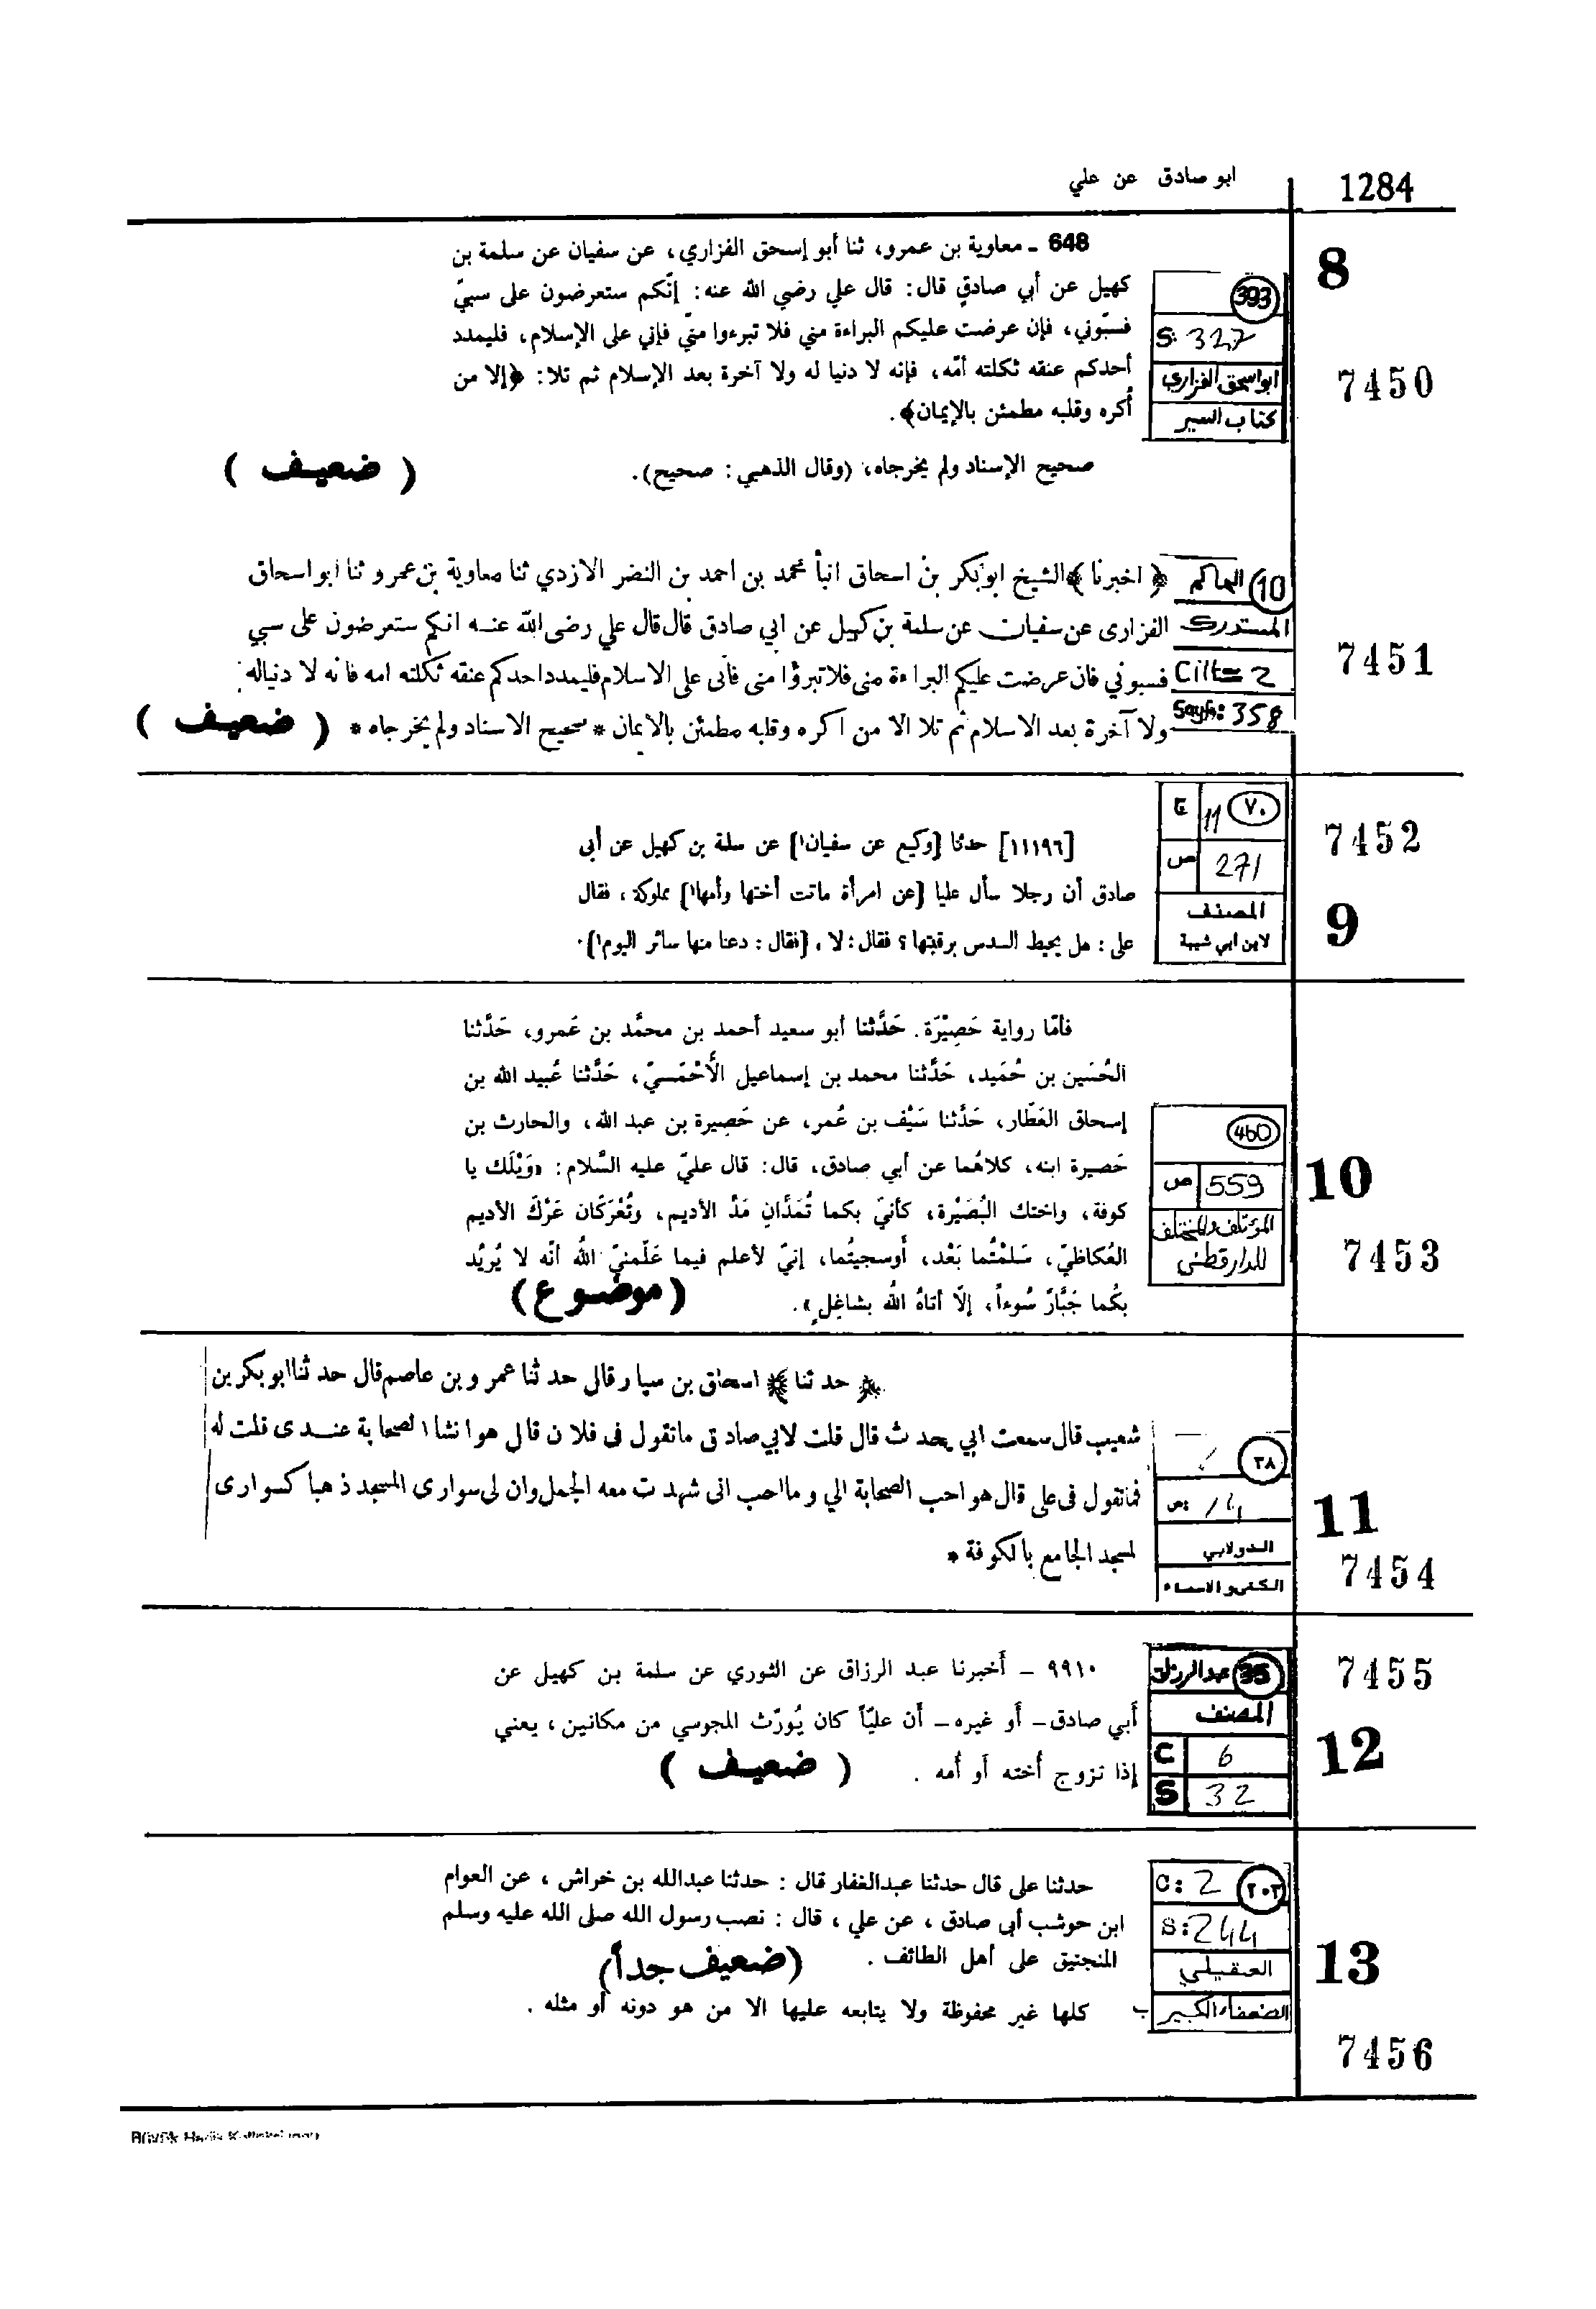 1284
ابو صادق عن علي
8
648 ـ معاوية بن عمرو، ثنا أبو إسحق الفزاري، عن سفيان عن سلمة بن
كهيل عن أبي صادق قال: قال علي رضي الله عنه: إنّكم ستعرضون على سبيّ
فسبّوني، فإن عرضت عليكم البراءة مني فلا تبرءوا منيّ فإني على الإسلام، فليمدد
أحدكم عنقه ثكلته أمّه، فإنه لا دنيا له ولا آخرة بعد الإسلام ثم تلا: ﴿إلا من
أُكره وقلبه مطمئن بالإيمان﴾.
صحيح الإسناد ولم يخرجاه، (وقال الذهبي: صحيح).
( ضعيف )
393
S: 327
ابو اسحق الفزاري
كتاب السير
7450
﴿ اخبرنا ﴾ الشيخ ابو بكر بن اسحاق انبأ محمد بن احمد بن النضر الازدي ثنا معاوية بن عمرو ثنا ابو اسحاق
الفزارى عن سفيان عن سلمة بن كهيل عن ابي صادق قال قال علي رضى الله عنه انكم ستعرضون على سبي
فسبوني فان عرضت عليكم البراءة منى فلا تبرؤا منى فانى على الاسلام فليمدد احدكم عنقه ثكلته امه فانه لا دنيا له
ولا آخرة بعد الاسلام ثم تلا الا من اكره وقلبه مطمئن بالايمان * صحيح الاسناد ولم يخرجاه *
( ضعيف )
10 الحاكم
المستدرك
Cilt= 2
Sayfa: 358
7451
[١١١٩٦] حدثنا [وكيع عن سفيان١] عن سلمة بن كهيل عن أبى
صادق أن رجلا سأل عليا [عن امرأة ماتت أختها وأمها١] مملوكة، فقال
على: هل يحيط السدس برقبتها؟ فقال: لا، [فقال: دعنا منها سائر اليوم١].
٧٠ 11 ج
271 ص
المصنف
لابن ابي شيبة
7452
9
فأمّا رواية حَصِيْرَة. حَدَّثنا أبو سعيد أحمد بن محمَّد بن عَمرو، حَدَّثنا
الحُسَين بن حُمَيد، حَدَّثنا محمد بن إسماعيل الأَحْمَسيّ، حَدَّثنا عُبيد الله بن
إسحاق العَطّار، حَدَّثنا سَيْف بن عُمر، عن حَصِيرة بن عبد الله، والحارث بن
حَصيرة ابنه، كلاهُما عن أبي صادق، قال: قال عليّ عليه السَّلام: «وَيْلَك يا
كوفة، واختك البُصَيْرة، كأنيّ بكما تُمَدَّانِ مَدّ الأديم، وتُعْرَكَان عَرْكَ الأديم
العُكاظيّ، سَلمْتُما بَعْد، أوسجيتُما، إنيّ لأعلم فيما عَلّمنيّ اللهُ أنّه لا يُرِيْد
بكُما جَبَّارٌ سُوءاً، إلّا أتاهُ اللهُ بشاغِلٍ».
(موضوع)
460
559 ص
المؤتلف والمختلف
للدارقطني
10
7453
﴿ حدثنا ﴾ اسحاق بن سيار قال حدثنا عمرو بن عاصم قال حدثنا ابو بكر بن
شعيب قال سمعت ابي يحدث قال قلت لابي صادق ماتقول فى فلان قال هو انشا الصحابة عندى قلت له
فماتقول فى على قال هو احب الصحابة الي وما احب انى شهدت معه الجمل وان لى سوارى المسجد ذهبا كسوارى
لمسجد الجامع بالكوفة *
٣٨
ص: 14
الدولابي
الكنى و الاسماء
11
7454
٩٩١٠ – أخبرنا عبد الرزاق عن الثوري عن سلمة بن كهيل عن
أبي صادق– أو غيره– أن عليّاً كان يُورّث المجوسي من مكانين، يعني
إذا تزوج أُخته أو أمه .
( ضعيف )
35 عبدالرزاق
المصنف
C 6
S 32
7455
12
حدثنا على قال حدثنا عبدالغفار قال : حدثنا عبدالله بن خراش ، عن العوام
ابن حوشب أبى صادق ، عن علي ، قال : نصب رسول الله صلى الله عليه وسلم
المنجنيق على أهل الطائف .
(ضعيف جداً)
كلها غير محفوظة ولا يتابعه عليها الا من هو دونه أو مثله .
٢٠٣ C: 2
S: 244
العقيلي
الضعفاء الكبير
13
7456